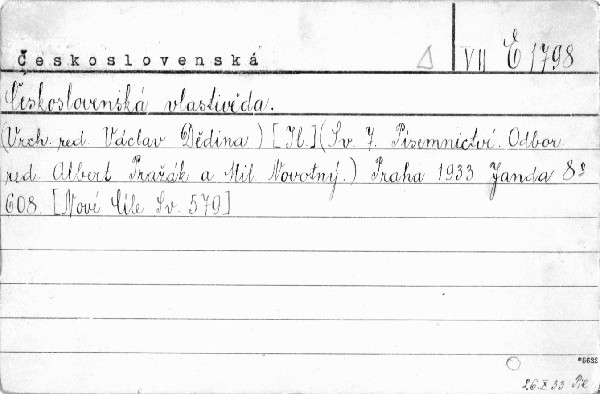 Československá
VII E 1798
Československá vlastivěda.
(Vrch. red. Václav Dědina) [Il.] (Sv. 7. Písemnictví. Odbor.
red. Albert Pražák a Mil. Novotný.) Praha 1933 Janda 8º
608. [Nové Cíle Sv. 579]
*5632
26.X 33